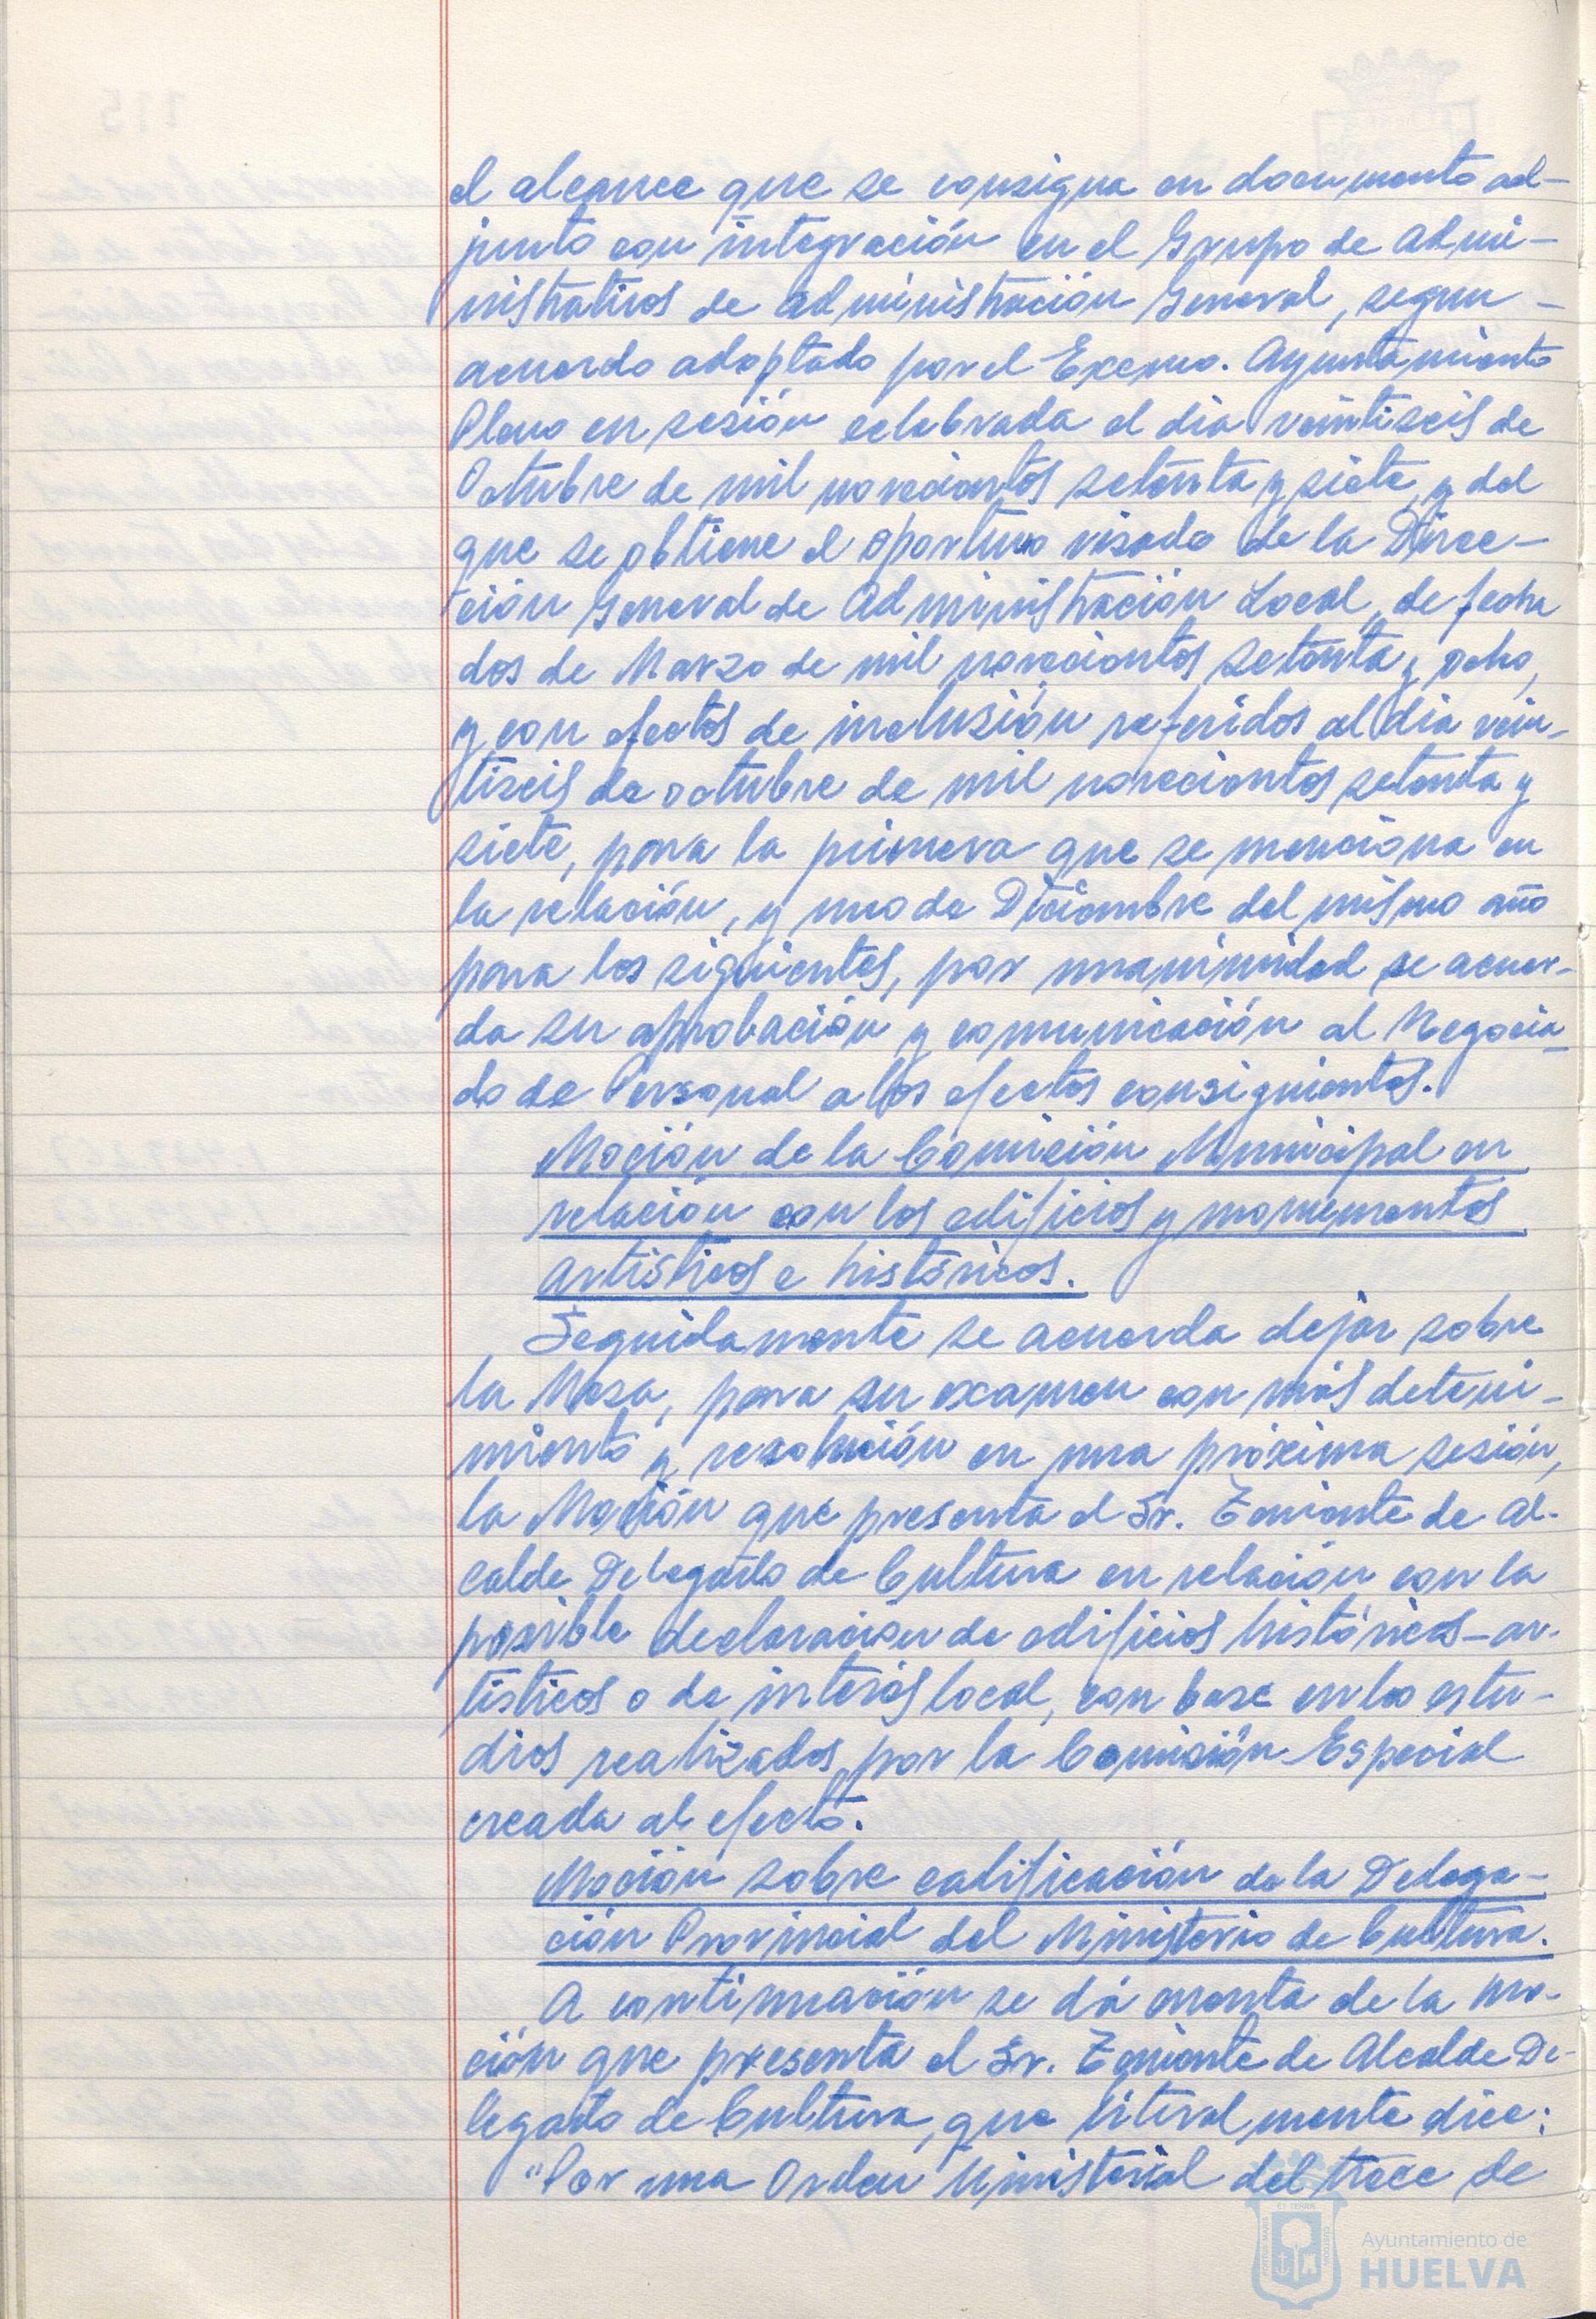 el alcance que se consigna en documento ad-
junto con integración en el Grupo de Admi-
nistrativos de Administración General, segun -
acuerdo adoptado por el Excmo. Ayuntamiento
Pleno en sesión celebrada el dia veintiseis de
Octubre de mil novecientos setenta y siete, y del
que se obtiene el oportuno visado de la Direc-
ción General de Administración Local, de fecha
dos de Marzo de mil novecientos setenta y ocho,
y con efectos de inclusión referidos al dia vein-
tiseis de octubre de mil novecientos setenta y
siete, para la primera que se menciona en
la relación, y uno de Diciembre del mismo año
para los siguientes, por unanimidad se acuer-
da su aprobación y comunicación al Negocia-
do de Personal a los efectos consiguientes.
Moción de la Comisión Municipal en
relación con los edificios y monumentos
artísticos e históricos.
Seguidamente se acuerda dejar sobre
la Mesa, para su examen con más deteni-
miento y resolución en una próxima sesión,
la Moción que presenta el Sr. Teniente de Al-
calde Delegado de Cultura en relación con la
posible declaración de edificios históricos-ar-
tísticos o de interés local, con base en los estu-
dios realizados por la Comisión Especial
creada al efecto.
Moción sobre calificación de la Delega-
ción Provincial del Ministerio de Cultura.
A continuación se dá cuenta de la mo-
ción que presenta el Sr. Teniente de Alcalde De-
legado de Cultura, que literalmente dice:
"Por una Orden Ministerial del trece de
Ayuntamiento de
HUELVA